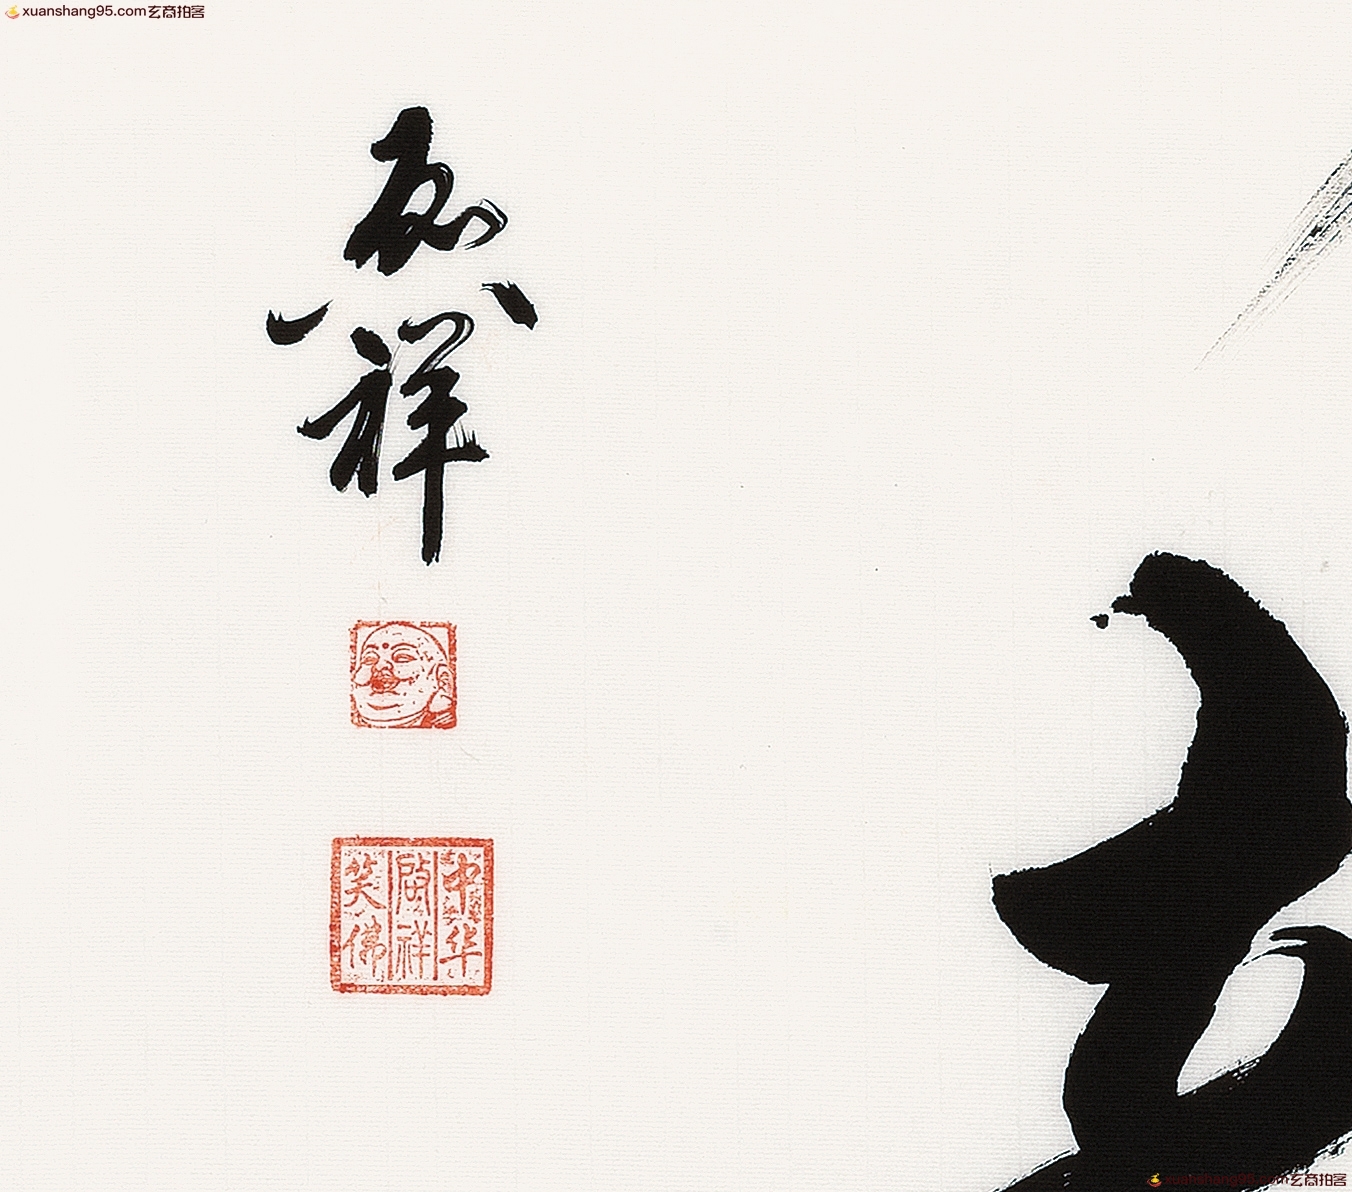 xuanshang95.com玄商拍客
启祥
中华
啟祥
笑佛
xuanshang95.com玄商拍客